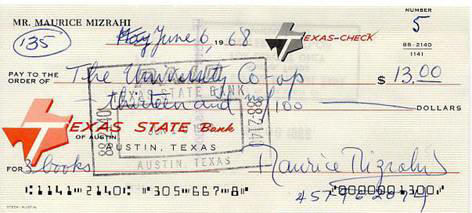 MR. MAURICE MIZRAHI
NUMBER
5
135
May June 6, 1968
TEXAS-CHECK
88-2140
1141
PAY TO THE
ORDER OF The University Co-op $ 13.00
thirteen and no/100 DOLLARS
STATE BANK
88-2140
88-2140
AUSTIN, TEXAS
TEXAS STATE Bank
OF AUSTIN
AUSTIN, TEXAS
FOR 3 books
Maurice Mizrahi
1141 2140 305 667 8